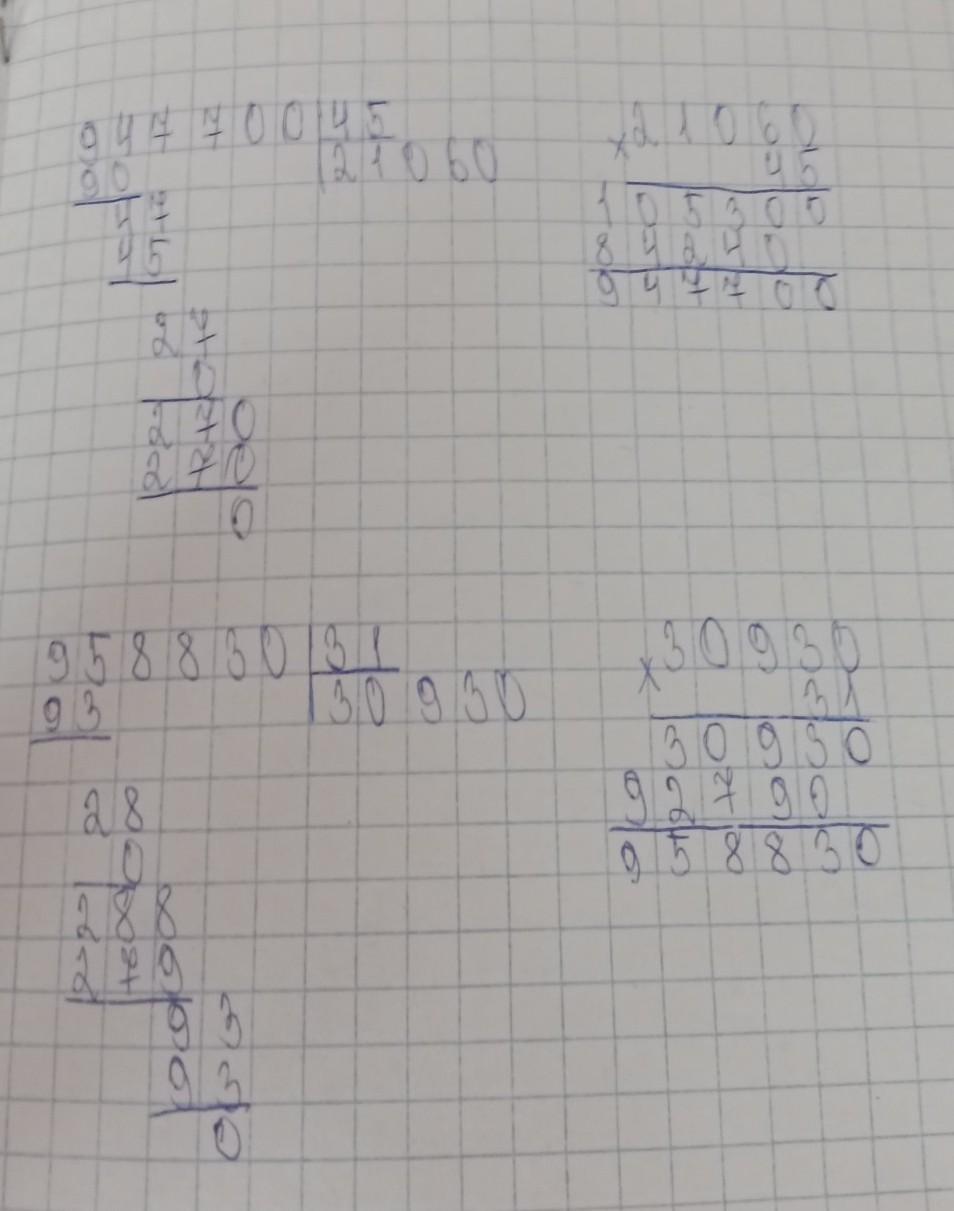 947700 45
90 21060
47
45
27
0
270
270
0
×21060
45
105300
84240
947700
958830 31
93 30930
28
0
288
279
93
93
0
×30930
31
30930
92790
958830